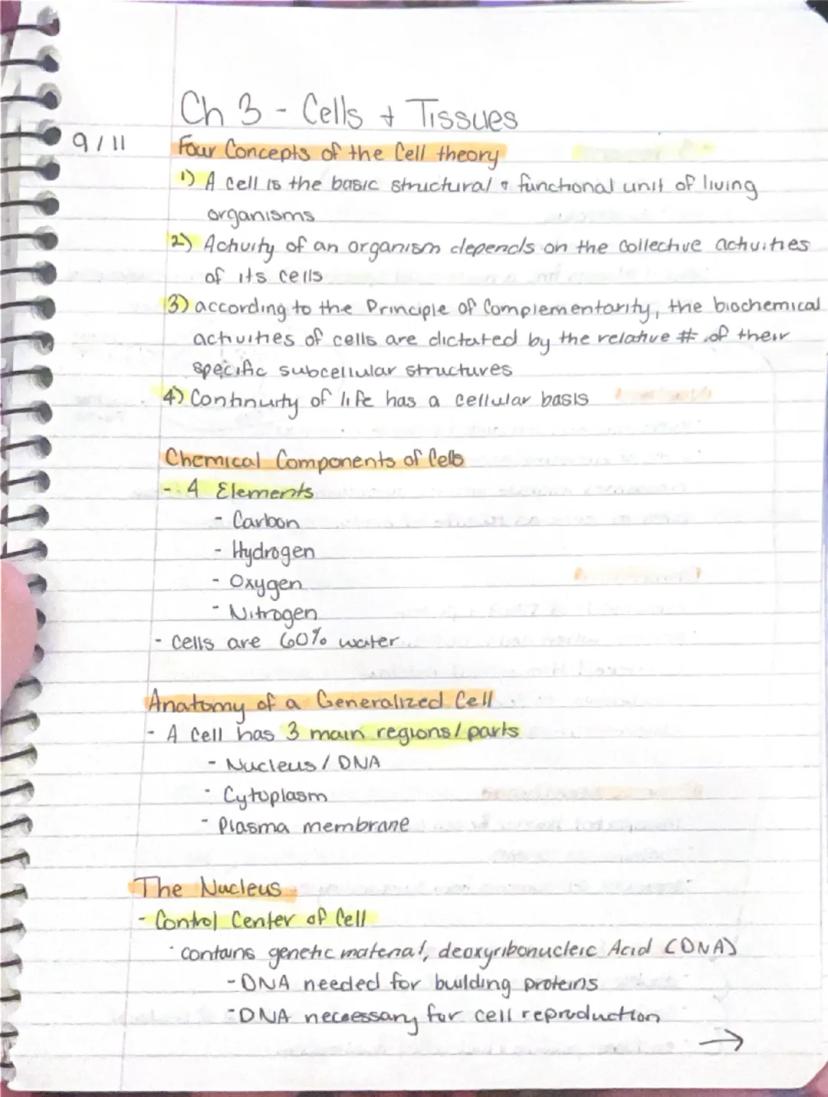 Ch 3 - Cells + Tissues
9/11
Four Concepts of the Cell theory
1) A cell is the basic structural & functional unit of living
organisms
2) Activity of an organism depends on the collective activities
of its cells
3) according to the Principle of Complementarity, the biochemical
activities of cells are dictated by the relative # of their
specific subcellular structures
4) Continuity of life has a cellular basis
Chemical Components of Cells
- 4 Elements
- Carbon
- Hydrogen
- Oxygen
- Nitrogen
- Cells are 60% water
Anatomy of a Generalized Cell
- A cell has 3 main regions/parts
- Nucleus / DNA
- Cytoplasm
- Plasma membrane
The Nucleus
- Control Center of Cell
· contains genetic material, deoxyribonucleic Acid (DNA)
- DNA needed for building proteins
- DNA necessary for cell reproduction
→